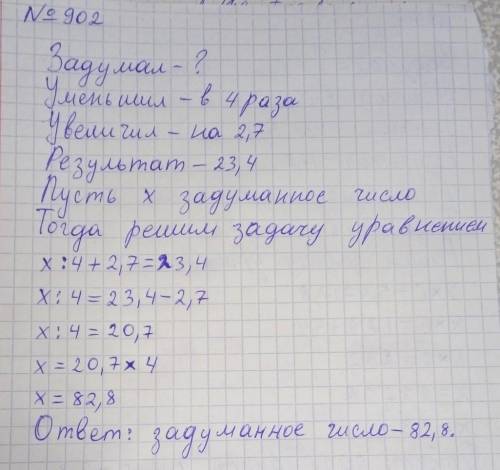 № 902
Задумал - ?
Уменьшил - в 4 раза
Увеличил - на 2,7
Результат - 23,4
Пусть x задуманное число
Тогда решим задачу уравнением
x : 4 + 2,7 = 23,4
x : 4 = 23,4 - 2,7
x : 4 = 20,7
x = 20,7 × 4
x = 82,8
Ответ: задуманное число - 82,8.